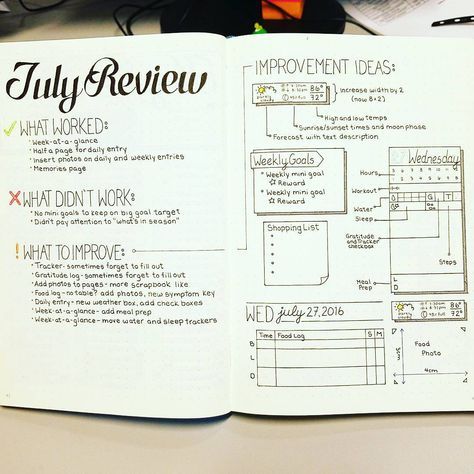 July Review
WHAT WORKED:
• Week-at-a-glance
• Half a page for daily entry
• Insert photos on daily and weekly entries
• Memories page
WHAT DIDN'T WORK:
• No mini goals to keep on big goal target
• Didn't pay attention to "what's in season"
WHAT TO IMPROVE:
• Tracker - sometimes forget to fill out
• Gratitude log - sometimes forget to fill out
• Add photos to pages - more scrapbook like
• Food log - no table? add photos, new symptom key
• Daily entry - new weather box, add check boxes
• Week-at-a-glance - add meal prep
• Week-at-a-glance - move water and sleep trackers
IMPROVEMENT IDEAS:
86°
72°
Increase width by 2
(now 8×2)
High and low temps
Sunrise/sunset times and moon phase
Forecast with text description
Weekly Goals
Weekly mini goal
Reward
Weekly mini goal
Reward
Shopping List
Wednesday
Hours
Workout
Water
Sleep
G
T
Gratitude
and Tracker
checkbox
Steps
Meal
Prep
L
D
WED july 27, 2016
86°
72°
Time
Food Log
S
M
B
L
D
Food
Photo
3cm
4cm